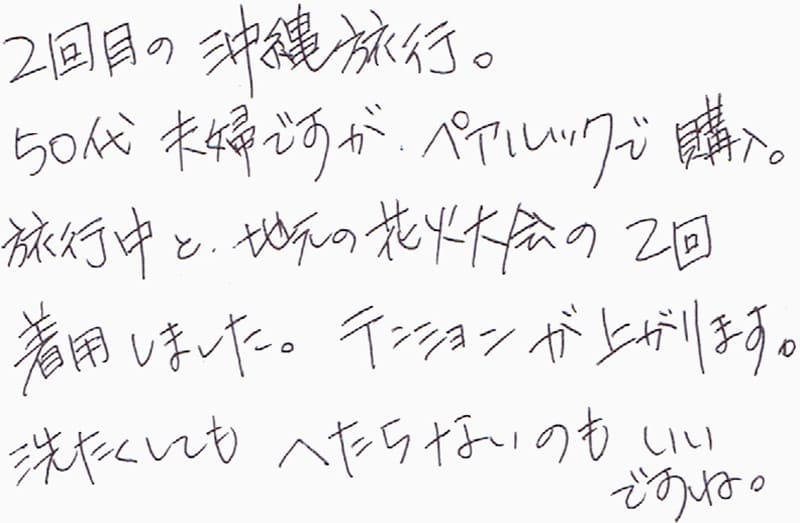 2回目の沖縄旅行。
50代夫婦ですが、ペアルックで購入。
旅行中と、地元の花火大会の2回
着用しました。テンションが上がります。
洗たくしても へたらないのもいい
ですね。